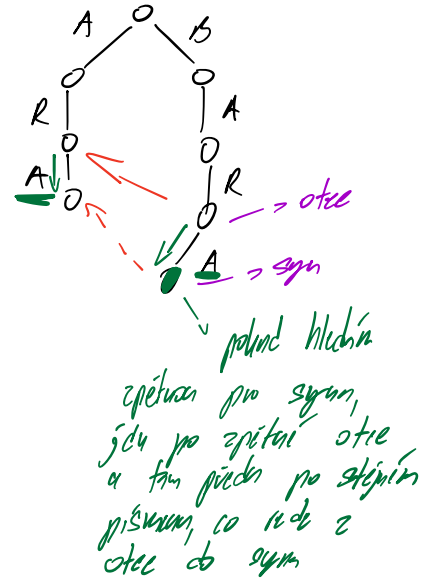 A B
R A
A R
otce
A syn
pokud hledám
zpětnou pro syna,
jdu po zpětné otce
a tam přejdu po stejném
písmenu, co vede z
otce do syna